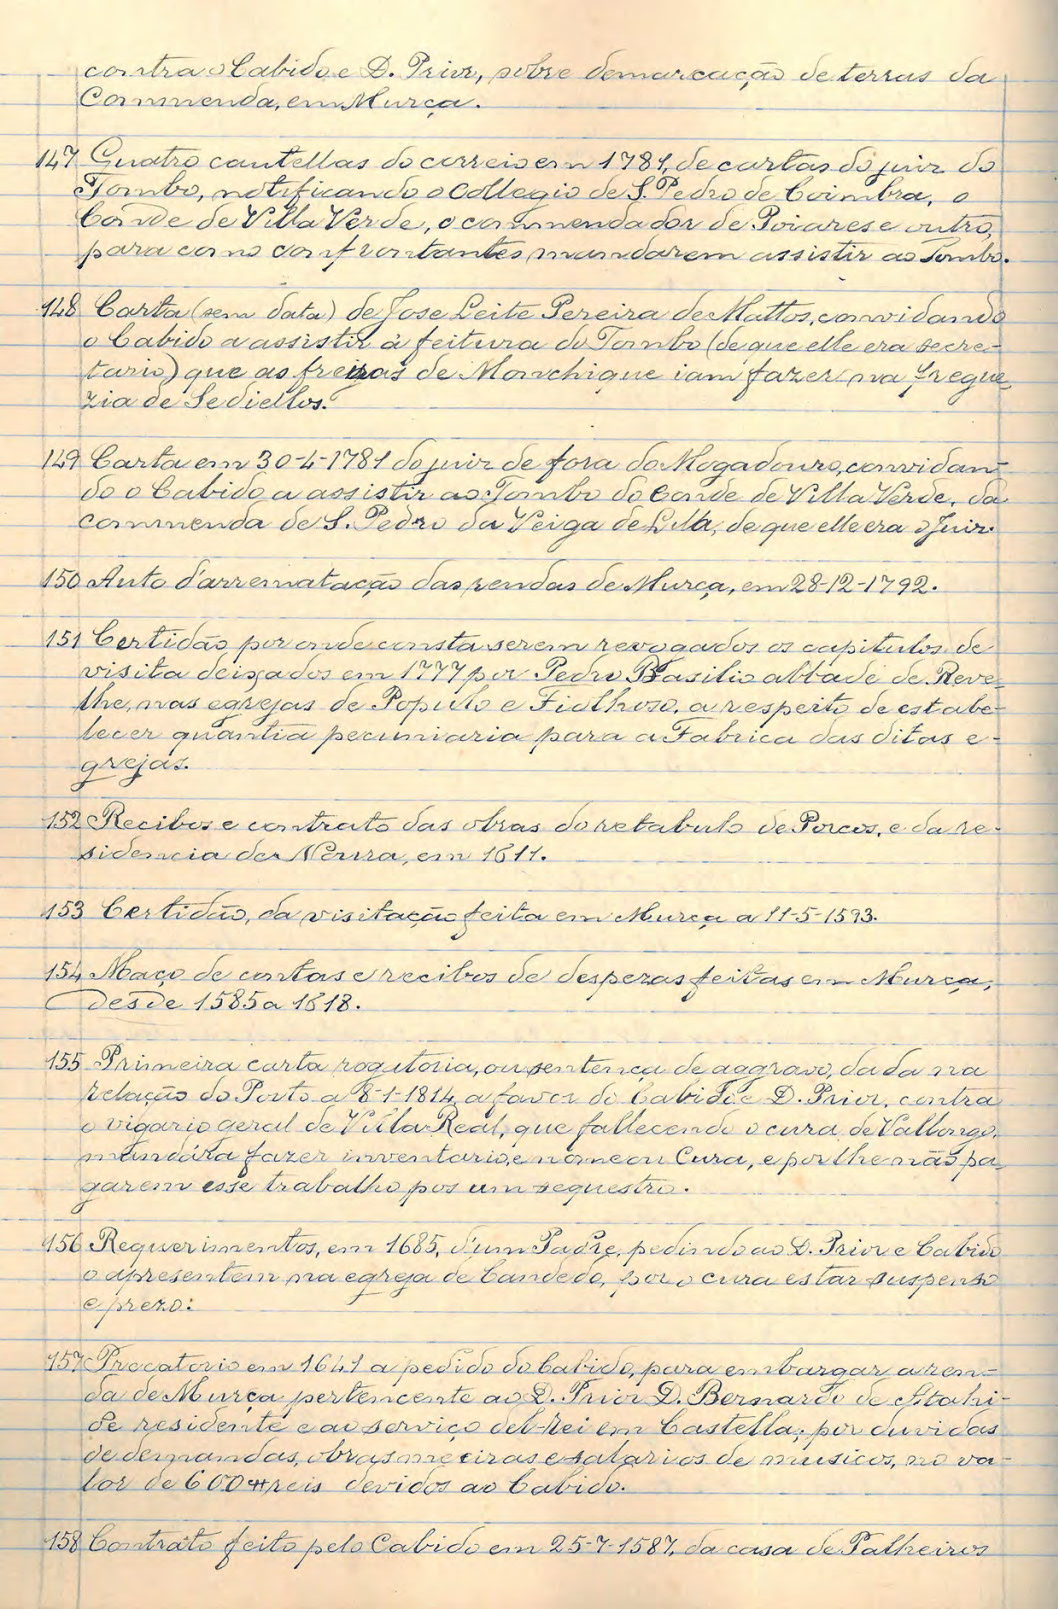 contra o Cabido e D. Prior, sobre demarcação de terras da
Commenda, em Murça.
147 Quatro cautellas do correio em 1781, de cartas do juiz do
Tombo, notificando o Collegio de S. Pedro de Coimbra, o
Conde de Villa Verde, o commendador de Poiares e outro,
para como confrontantes, mandarem assistir ao Tombo.
148 Carta (sem data) de Jose Leite Pereira de Mattos, convidando
o Cabido a assistir à feitura do Tombo (de que elle era secre-
tario) que as freiras de Monchique iam fazer na fregue-
zia de Sediellos.
149 Carta em 30-4-1781 do juiz de fora do Mogadouro, convidan-
do o Cabido a assistir ao Tombo do Conde de Villa Verde, da
commenda de S. Pedro da Veiga de Lilla, de que elle era o Juiz.
150 Auto d'arrematação das rendas de Murça, em 28-12-1792.
151 Certidão por onde consta serem revogados os capitulos de
visita deixados em 1777 por Pedro Basilio abbade de Reve-
lhe, nas egrejas de Populo e Fiolhoso, a respeito de estabe-
lecer quantia pecuniaria para a Fabrica das ditas e-
grejas.
152 Recibos e contrato das obras do retabulo de Porcos, e da re-
sidencia da Noura, em 1611.
153 Certidão, da visitação feita em Murça a 11-5-1593.
154 Maço de contas e recibos de despezas feitas em Murça,
desde 1585 a 1618.
155 Primeira carta rogatoria, ou sentença de aggravo, dada na
relação do Porto a 8-1-1814, a favor do Cabido e D. Prior, contra
o vigario geral de Villa Real, que fallecendo o cura de Vallongo,
mandára fazer inventario, e nomeou Cura, e por lhe não pa-
garem esse trabalho pos um sequestro.
156 Requerimentos, em 1685, d'um Padre, pedindo ao D. Prior e Cabido
o apresentem na egreja de Candedo, por o cura estar suspenso
e prezo:
157 Precatorio em 1641 a pedido do Cabido, para embargar a ren-
da de Murça pertencente ao D. Prior D. Bernardo de Atahi-
de residente e ao serviço del-rei em Castella; por duvidas
de demandas, obras meeiras e salarios de musicos, no va-
lor de 600$reis devidos ao Cabido.
158 Contrato feito pelo Cabido em 25-7-1587, da casa de Palheiros